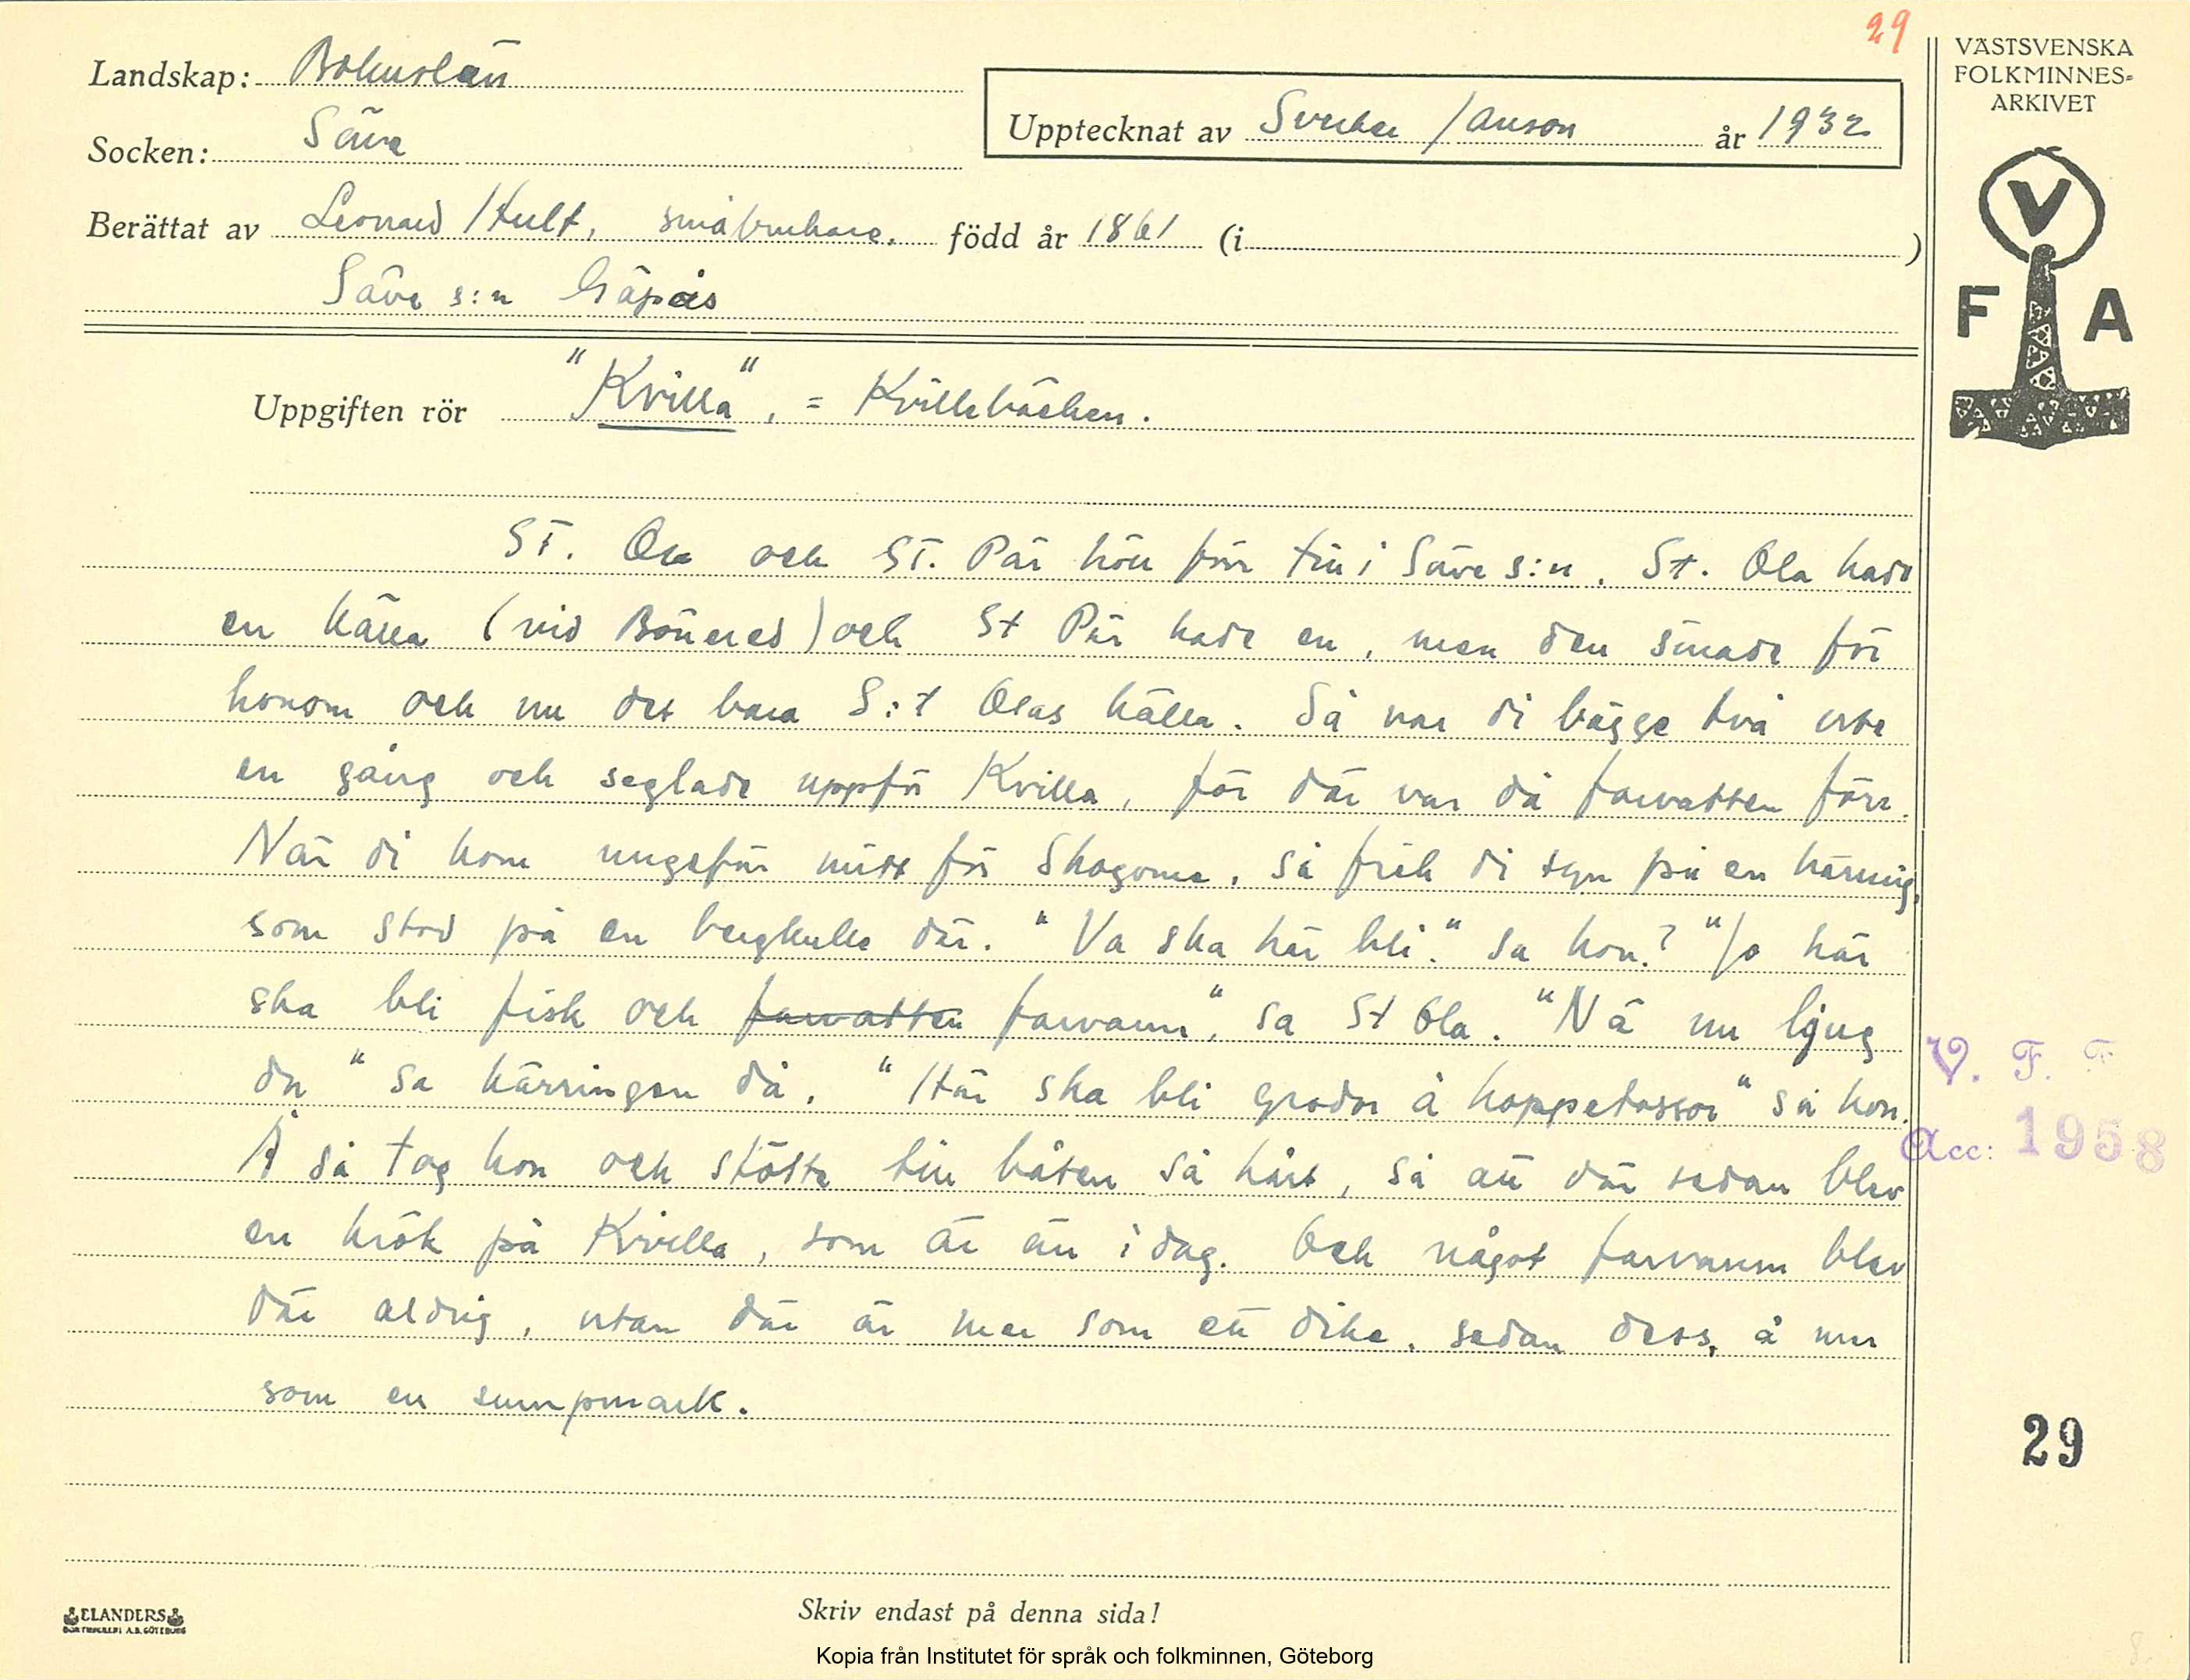 29
Landskap: Bohuslän
Socken: Säve
Upptecknat av Sverker Janson år 1932
Berättat av Leonard Hult, småbrukare, född år 1861 (i )
Säve s:n Gäpås
Uppgiften rör "Kvilla", = Kvillebäcken.
ST. Ola och ST. Pär höll förr till i Säve s:n. St. Ola hade
en källa (vid Bönered) och St Pär hade en, men den sinade för
honom och nu det bara S:t Olas källa. Så var di bägge två ute
en gång och seglade uppför Kvilla, för där var då farvatten förr.
När di kom ungefär mitt för Skogome, så fick di syn på en käring,
som stod på en bergkulle där. "Va ska här bli." sa hon? "Jo här
ska bli fisk och farvatten farvann", sa St Ola. "Nä nu ljug
du" sa kärringen då. "Här ska bli grodor å hoppetossor" sa hon.
Å så tog hon och stötte till båten så hårt, så att där sedan blev
en krök på Kvilla, som är än i dag. Och något farvann blev
där aldrig, utan där är mer som ett dike, sedan dess, å mer
som en sumpmark.
VÄSTSVENSKA
FOLKMINNES-
ARKIVET
V
F A
V. F. F
Acc: 1958
29
ELANDERS
BOKTRYCKERI A.B. GÖTEBORG
Skriv endast på denna sida!
Kopia från Institutet för språk och folkminnen, Göteborg
8.